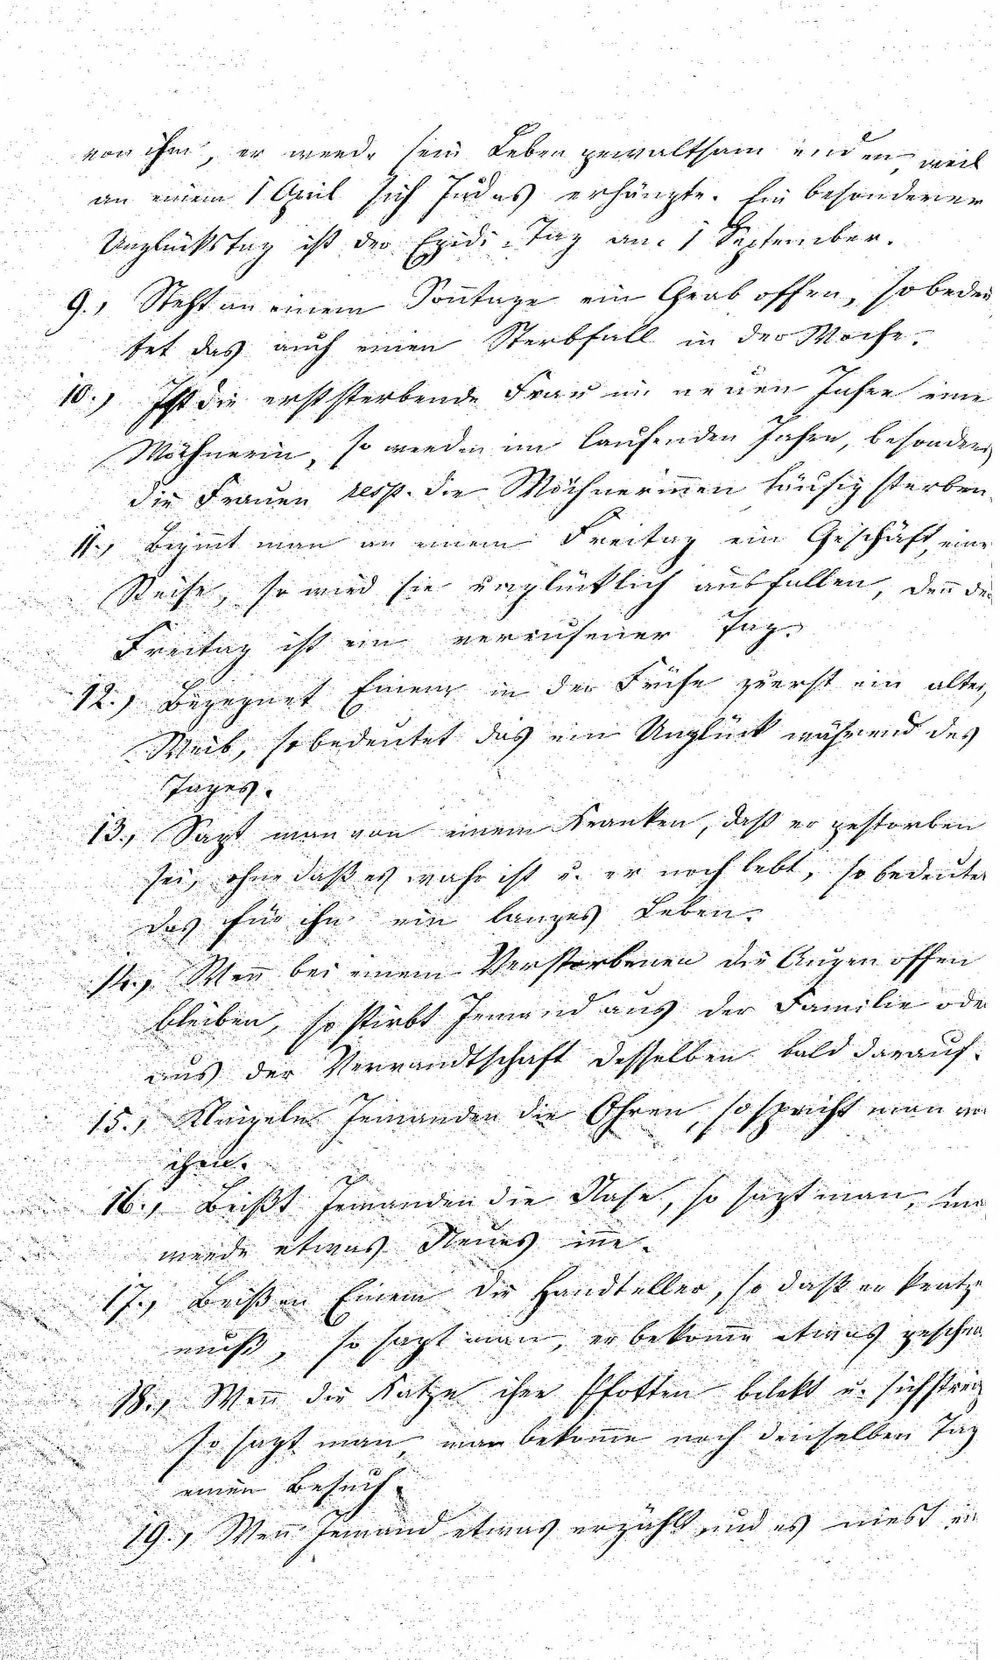 von ihm, er werde sein Leben gewaltsam enden, weil
an einem 1 April sich Judas erhängte. Ein besonderer
Unglückstag ist der Egidi-Tag am 1 September.
9., Steht an einem Soñtage ein Grab offen, so bedeu
tet das auch einen Sterbfall in der Woche.
10., Ist die erststerbende Frau im neuen Jahre eine
Wöchnerin, so werden im laufenden Jahre, besonders
die Frauen resp. die Wöchneriñen häufig sterben.
11., Begiñt man an einem Freitag ein Geschäft, eine
Reise, so wird sie unglücklich ausfallen, deñ de
Freitag ist ein verrufener Tag.
12., Begegnet Einem in der Frühe zuerst ein altes
Weib, so bedeutet das ein Unglück während des
Tages.
13., Sagt man von einem Kranken, daß er gestorben
sei, ohne daß es wahr ist u. er noch lebt, so bedeutet
das für ihn ein langes Leben.
14., Weñ bei einem Verstorbenen die Augen offen
bleiben, so stirbt Jemand aus der Familie ode
aus der Verwandtschaft desselben bald darauf.
15., Klingeln Jemanden die Ohren, so spricht man vo
ihm.
16., Beißt Jemanden die Nase, so sagt man, ma
werde etwas Neues iñe.
17., Beißen Einem die Handteller, so daß er kratze
muß, so sagt man, er bekome etwas geschen
18., Weñ die Katze ihre Pfotten belekt u. sich streic
so sagt man, man bekome noch denselben Tag
einen Besuch.
19., Weñ Jemand etwas erzählt und es niest ein